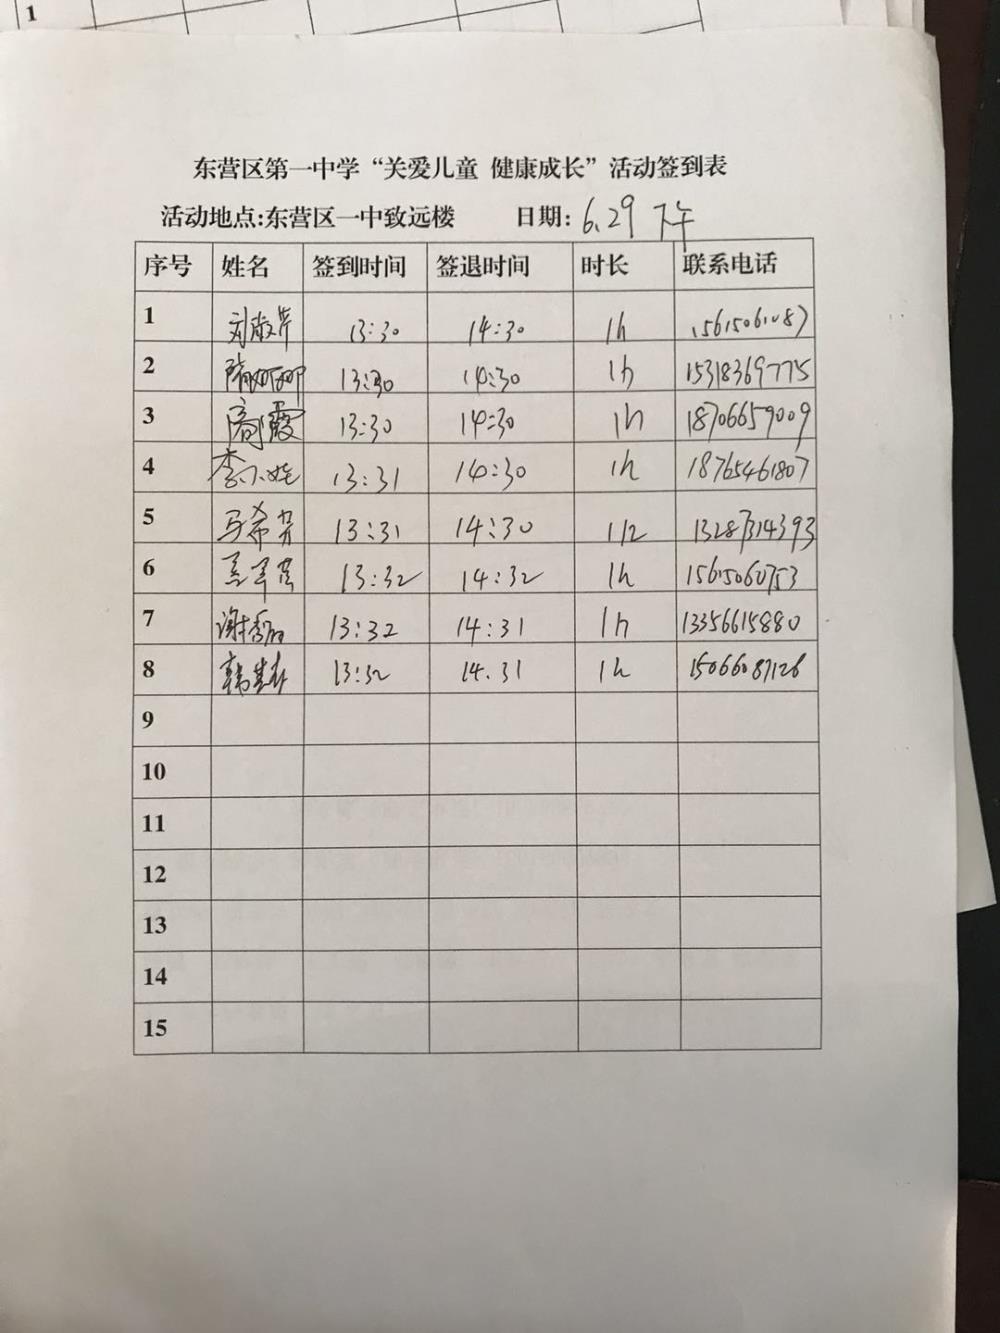 1
东营区第一中学“关爱儿童 健康成长”活动签到表
活动地点:东营区一中致远楼 日期: 6.29 下午
序号 姓名 签到时间 签退时间 时长 联系电话
1 刘淑芹 13:30 14:30 1h 15615061087
2 13:30 14:30 1h 15318369775
3 霞 13:30 14:30 1h 18706659009
4 李小娃 13:31 14:30 1h 18765461807
5 马希 13:31 14:30 1h 13287314393
6 13:32 14:32 1h 15615060753
7 谢 13:32 14:31 1h 13356615880
8 韩 13:32 14.31 1h 15066087126
9
10
11
12
13
14
15